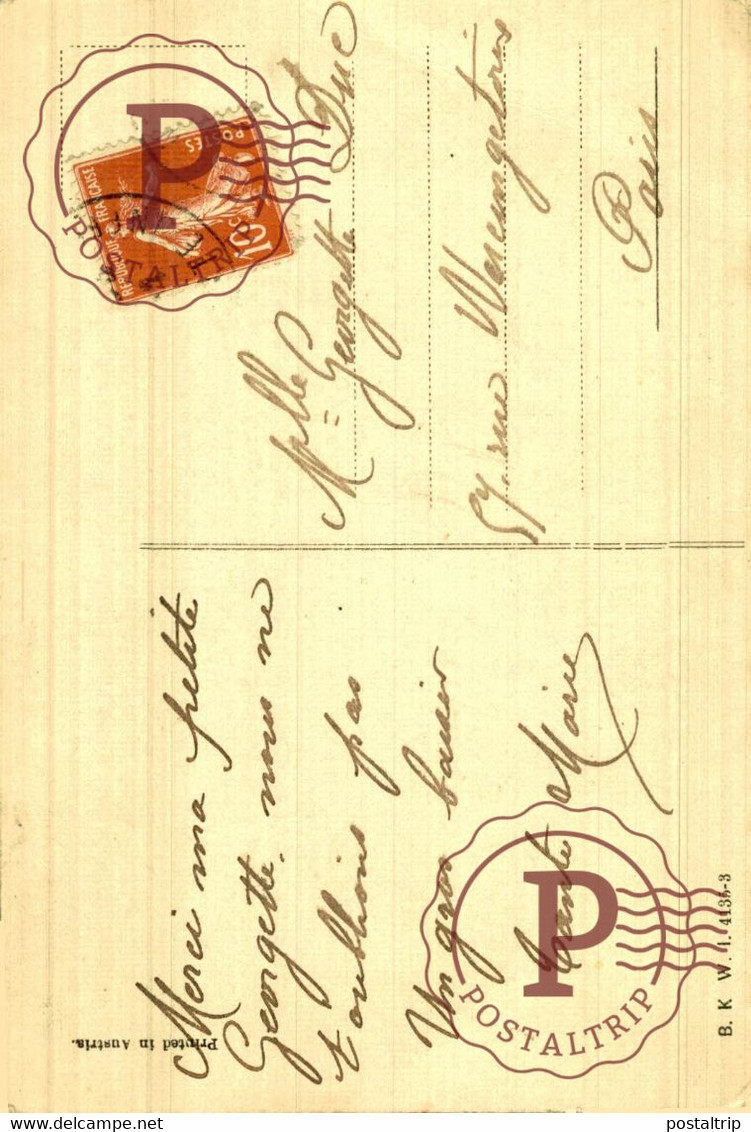 Merci ma petite
Georgette, nous ne
t'oublions pas
Un gros baiser
Tante Marie
Mlle Georgette Duc
57, rue Vercingetorix
Paris
REPUBLIQUE FRANÇAISE
POSTES
10c
Printed in Austria.
B. K. W. I. 4135-3
P
POSTALTRIP
P
POSTALTRIP
delcampe.net
postaltrip